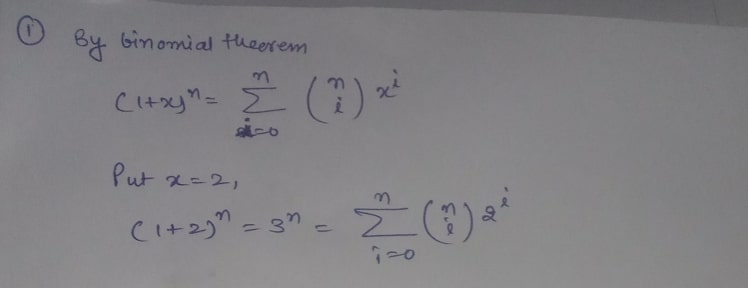 ① By binomial theorem
(1+x)ⁿ = ∑ⁿᵢ₌₀ (n i) xⁱ
Put x=2,
(1+2)ⁿ = 3ⁿ = ∑ⁿᵢ₌₀ (n i) 2ⁱ